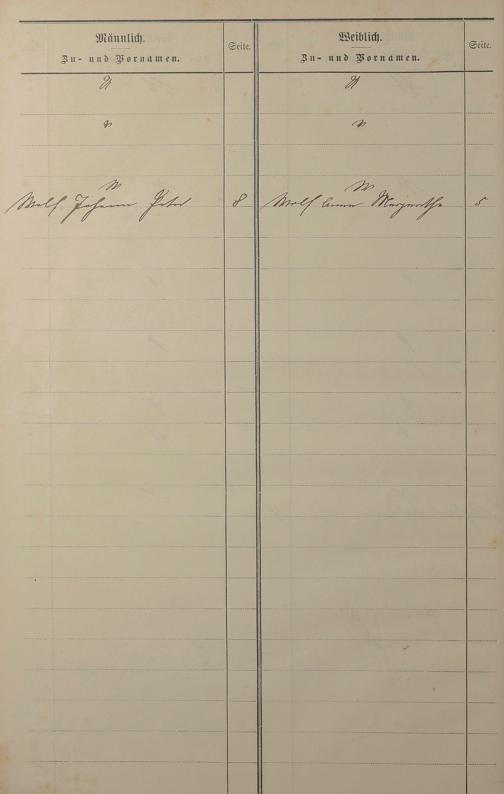 Männlich.
Zu- und Vornamen.
Seite.
Weiblich.
Zu- und Vornamen.
Seite.
U
U
V
V
W
W
Wolf Johann Peter
8
Wolf Anna Margaretha
5